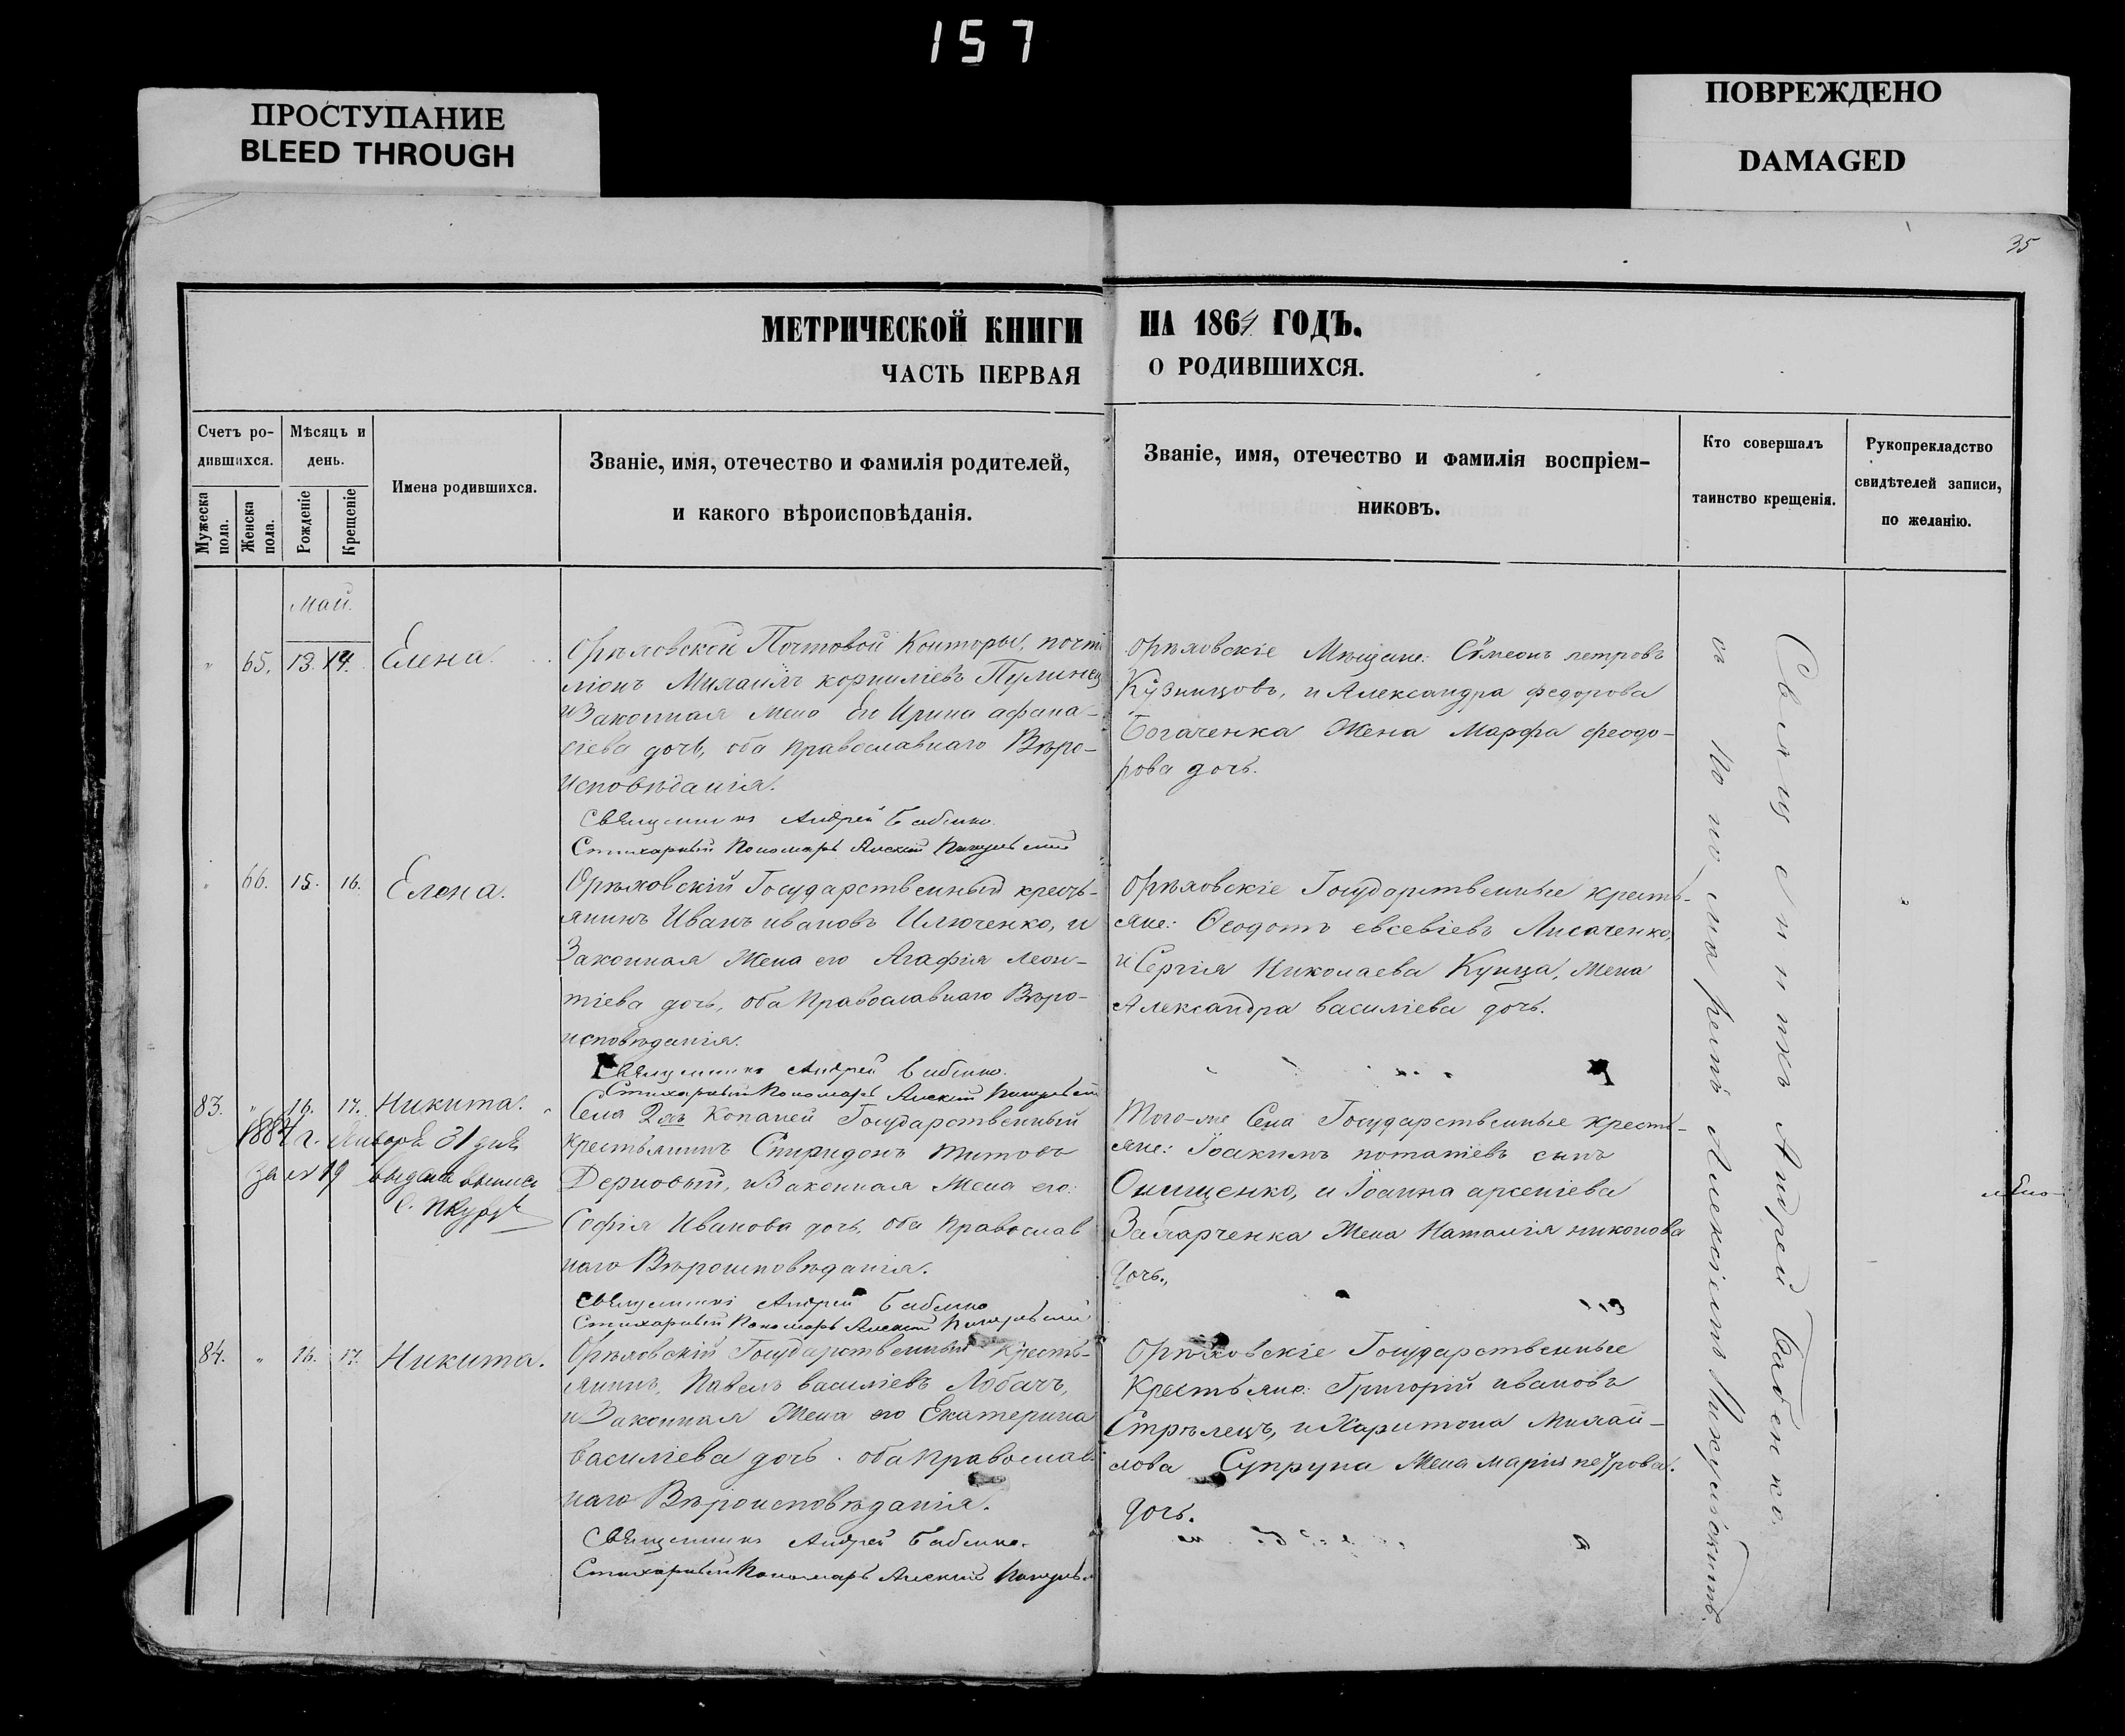 157
ПРОСТУПАНИЕ
BLEED THROUGH
ПОВРЕЖДЕНО
DAMAGED
35
МЕТРИЧЕСКОЙ КНИГИ НА 1864 ГОДЪ.
ЧАСТЬ ПЕРВАЯ О РОДИВШИХСЯ.
Счетъ ро-
дившихся.
Мужеска пола.
Женска пола.
Мѣсяцъ и
день.
Рожденіе
Крещеніе
Имена родившихся.
Званіе, имя, отечество и фамилія родителей,
и какого вѣроисповѣданія.
Званіе, имя, отечество и фамилія воспріем-
никовъ.
Кто совершалъ
таинство крещенія.
Рукоприкладство
свидѣтелей записи,
по желанію.
Май.
65. 13. 14. Елена.
Орѣховской Почтовой Конторы, почта
ліонъ Михаилъ корниліевъ
и Законная Жена Его Ирина афана-
сіева дочь, оба православнаго Вѣро-
исповѣданія.
Священникъ Андрей Бабенко.
Стихарный Пономарь Алексій
Орѣховскіе Мѣщане: Сѵмеонъ петровъ
Кузницовъ, и Александра федорова
Богаченка Жена Марфа феодо-
рова дочь.
66. 15. 16. Елена.
Орѣховскій Государственный кресть-
янинъ Иванъ ивановъ Илюченко, и
Законная Жена его Агафія леон-
тіева дочь, оба Православнаго Вѣро-
исповѣданія.
Священникъ Андрей Бабенко.
Стихарный Пономарь Алексій
Орѣховскіе Государственные кресть-
яне: Ѳеодотъ евсевіевъ Лисаченко,
и Сергія Николаева Купца, Жена
Александра василіева дочь.
83. " 16. 17. Никита.
1884 г. Января 31 дня
за № 19 выдана
Села Копаней Государственный
Крестьянинъ Спиридонъ титовъ
Дерновый, и Законная Жена его:
Софія Иванова дочь, оба Православ
наго Вѣроисповѣданія.
Священникъ Андрей Бабенко
Стихарный Пономарь Алексій
Того-же Села Государственные кресть-
яне: Іоакимъ потапіевъ сынъ
Онищенко, и Іоанна арсеніева
Жена Наталія никонова
дочь.
84. " 16. 17. Никита.
Орѣховскій Государственный Кресть-
янинъ, Павелъ василіевъ Лобачъ,
и Законная Жена его Екатерина
василіева дочь. оба православ
наго Вѣроисповѣданія.
Священникъ Андрей Бабенко.
Стихарный Пономарь Алексій
Орѣховскіе Государственные
Крестьяне: Григорій ивановъ
Стрѣлецъ, и Харитона Михай-
лова Супруна Жена марія петрова.
дочь.
Священникъ Андрей Бабенко.
съ Пономаремъ Алексіемъ